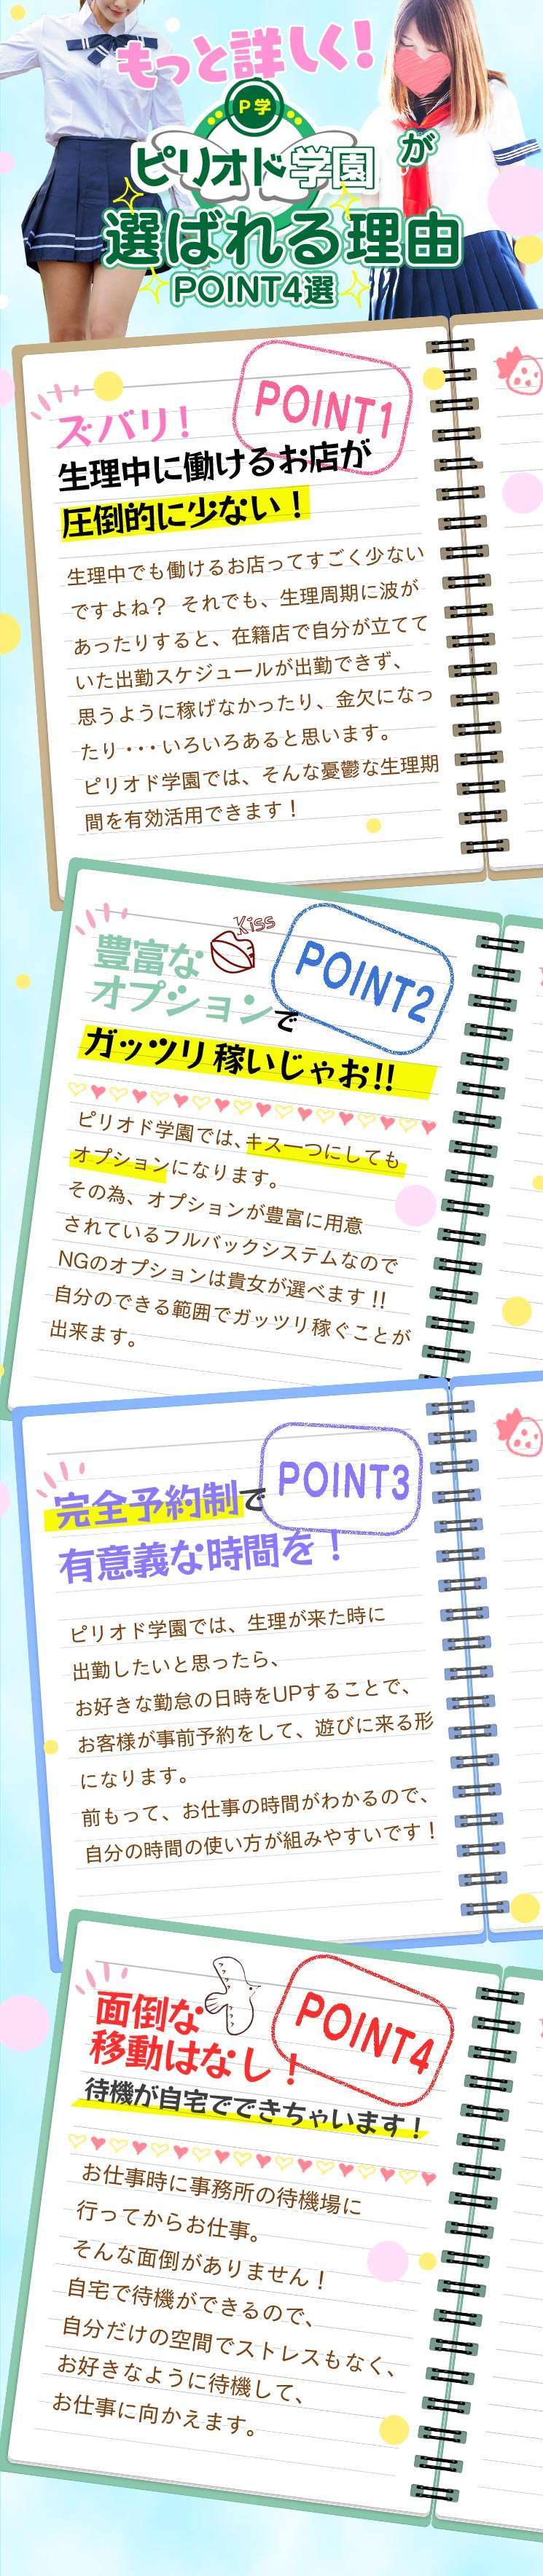 もっと詳しく!
P学
ピリオド学園が
選ばれる理由
POINT4選
POINT1
ズバリ!
生理中に働けるお店が
圧倒的に少ない!
生理中でも働けるお店ってすごく少ない
ですよね? それでも、生理周期に波が
あったりすると、在籍店で自分が立てて
いた出勤スケジュールが出勤できず、
思うように稼げなかったり、金欠になっ
たり・・・いろいろあると思います。
ピリオド学園では、そんな憂鬱な生理期
間を有効活用できます!
Kiss
POINT2
豊富な
オプションで
ガッツリ稼いじゃお!!
ピリオド学園では、キス一つにしても
オプションになります。
その為、オプションが豊富に用意
されているフルバックシステムなので
NGのオプションは貴女が選べます!!
自分のできる範囲でガッツリ稼ぐことが
出来ます。
POINT3
完全予約制で
有意義な時間を!
ピリオド学園では、生理が来た時に
出勤したいと思ったら、
お好きな勤怠の日時をUPすることで、
お客様が事前予約をして、遊びに来る形
になります。
前もって、お仕事の時間がわかるので、
自分の時間の使い方が組みやすいです!
POINT4
面倒な
移動はなし!
待機が自宅でできちゃいます!
お仕事時に事務所の待機場に
行ってからお仕事。
そんな面倒がありません!
自宅で待機ができるので、
自分だけの空間でストレスもなく、
お好きなように待機して、
お仕事に向かえます。